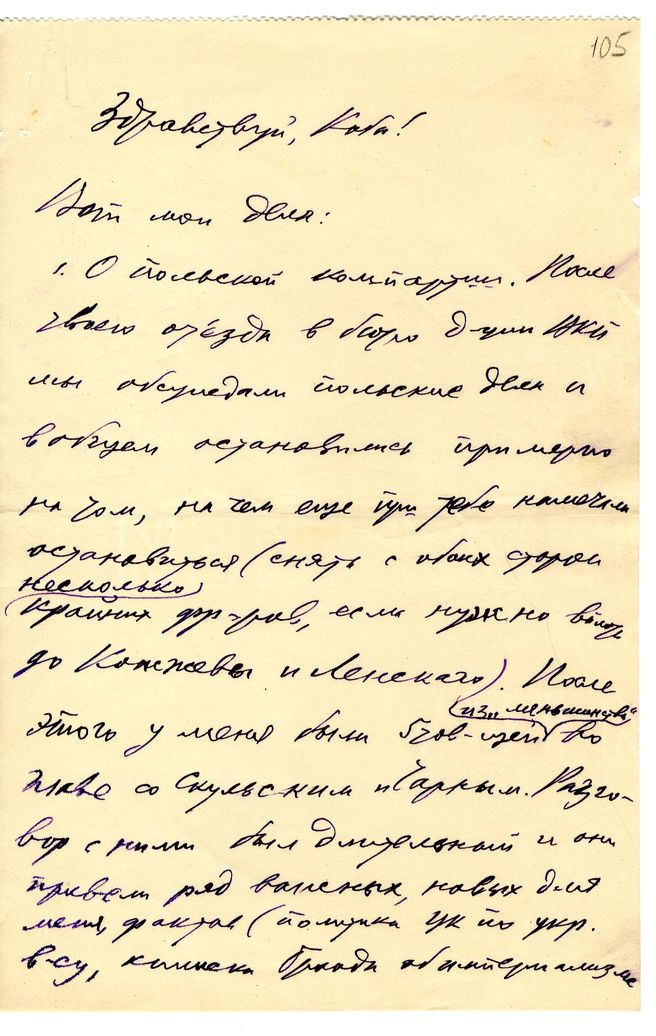 105
Здравствуй, Коба!
Вот мои дела:
1. О польской компартии. После
твоего отъезда в бюро д-ции ВКП
мы обсуждали польские дела и
в общем остановились примерно
на том, на чем еще при тебе намечали
остановиться (снять с обоих сторон
несколько
крайних фр-ров, если нужно вплоть
до Костжевы и Ленского). После
из „меньшинства“
этого у меня были 5 тов-щей во
главе со Скульским и Чарным. Разго-
вор с ними был длительный и они
привели ряд важных, новых для
меня, фактов (политика ЦК по укр.
в-су, книжка Бранда об империализме